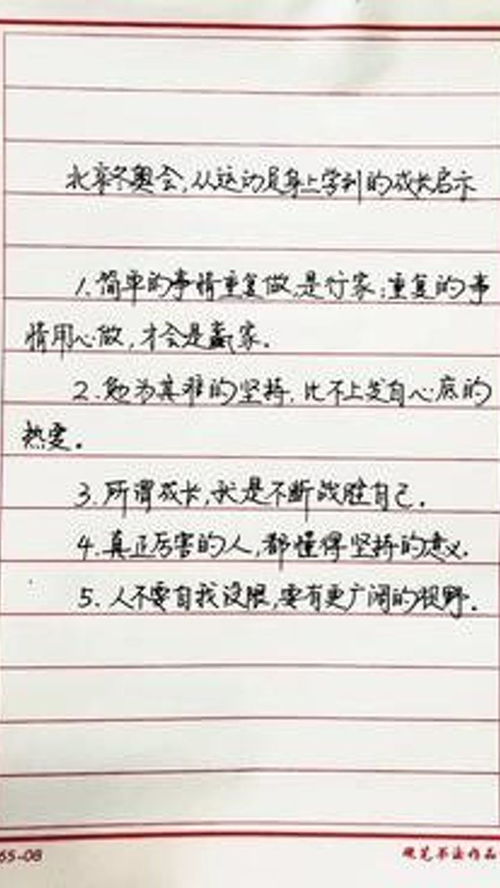 北京冬奥会,从运动员身上学到的成长启示
1.简单的事情重复做,是行家;重复的事
情用心做,才会是赢家。
2.勉为其难的坚持,比不上发自心底的
热爱。
3.所谓成长,就是不断战胜自己。
4.真正厉害的人,都懂得坚持的意义。
5.人不要自我设限,要有更广阔的视野。
65-08
硬笔书法作品